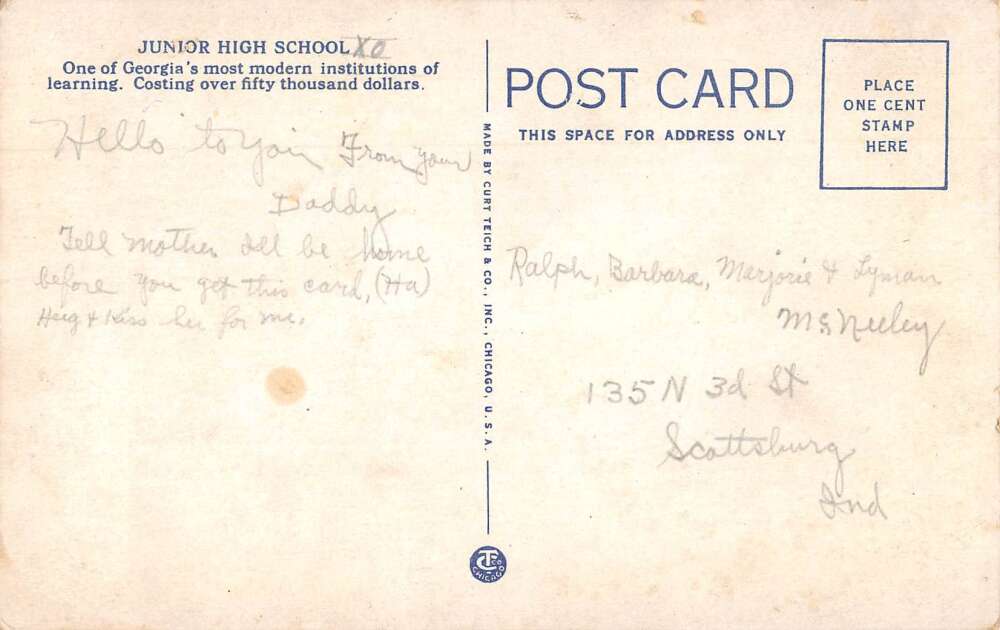 JUNIOR HIGH SCHOOL XO
One of Georgia's most modern institutions of
learning. Costing over fifty thousand dollars.
Hello to you From your
Daddy
Tell mother Ill be home
before you get this card, (Ha)
Heig & Kiss her for me.
MADE BY CURT TEICH & CO., INC., CHICAGO, U. S. A.
POST CARD
THIS SPACE FOR ADDRESS ONLY
PLACE
ONE CENT
STAMP
HERE
Ralph, Barbara, Marjorie & Lyman
McNeeley
135 N 3d St
Scottsburg
Ind
CTCo
CHICAGO